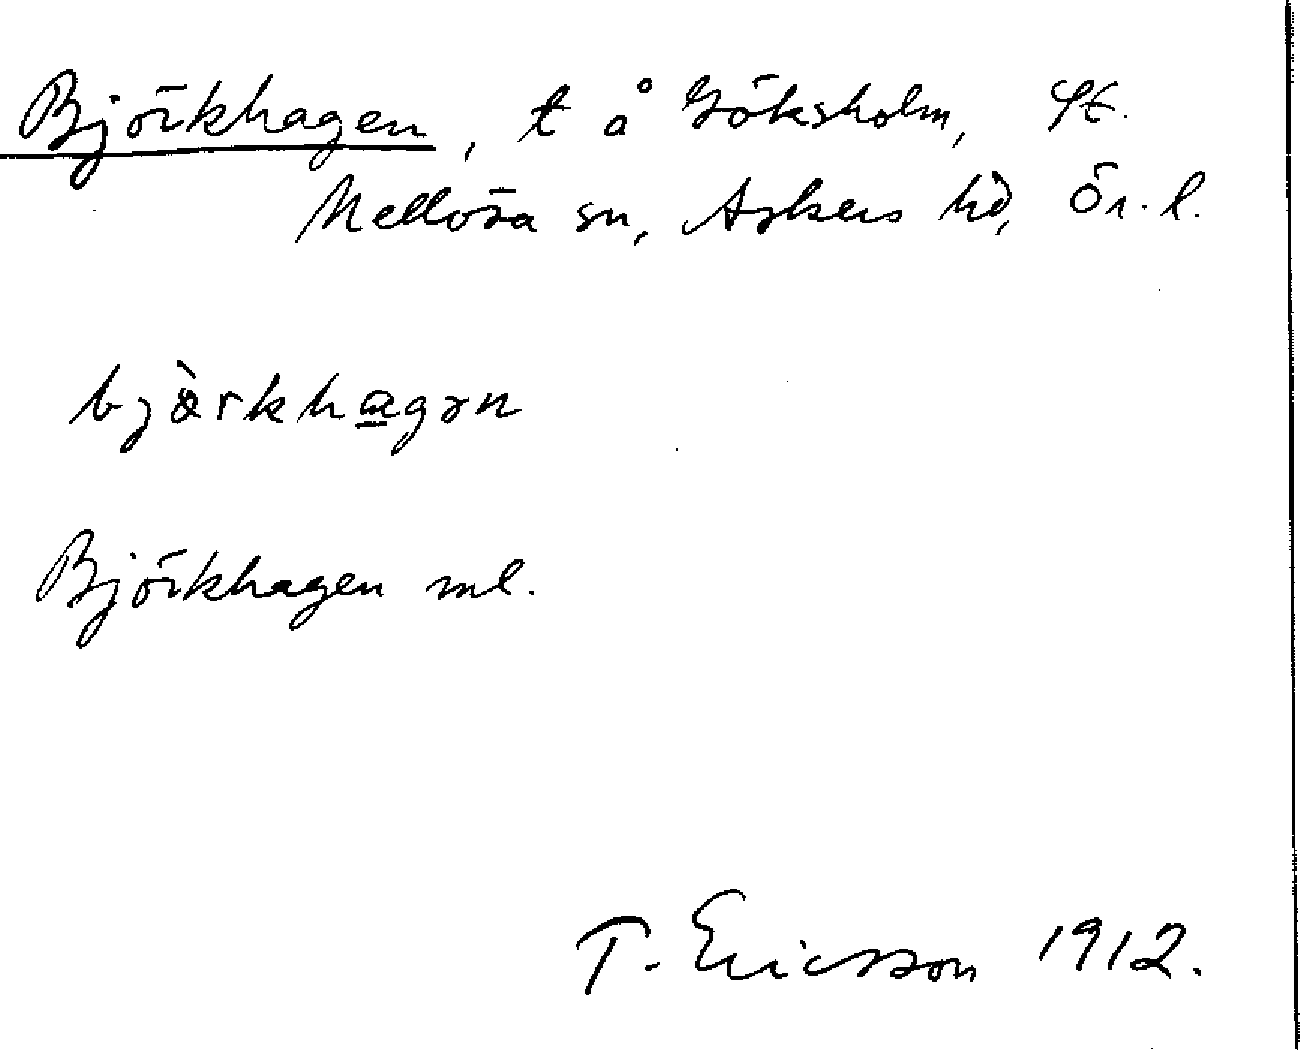 Björkhagen, t å Göksholm, St.
Mellösa sn, Askers hd, Ör. l.
bjæ̀rkhægən
Björkhagen ml.
T. Ericsson 1912.